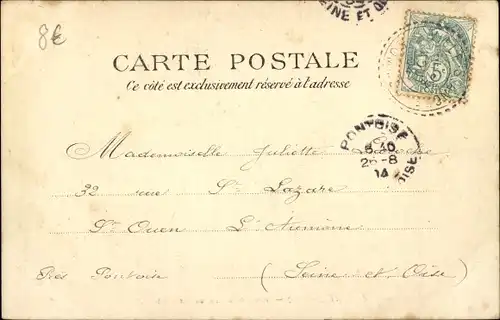 8€
SEINE ET OI
CARTE POSTALE
Ce côté est exclusivement réservé à l'adresse
5
PONTOISE
26-8
14
OISE
Mademoiselle Juliette
32 rue St Lazare
St Ouen L'Aumône
Près Pontoise (Seine et Oise)